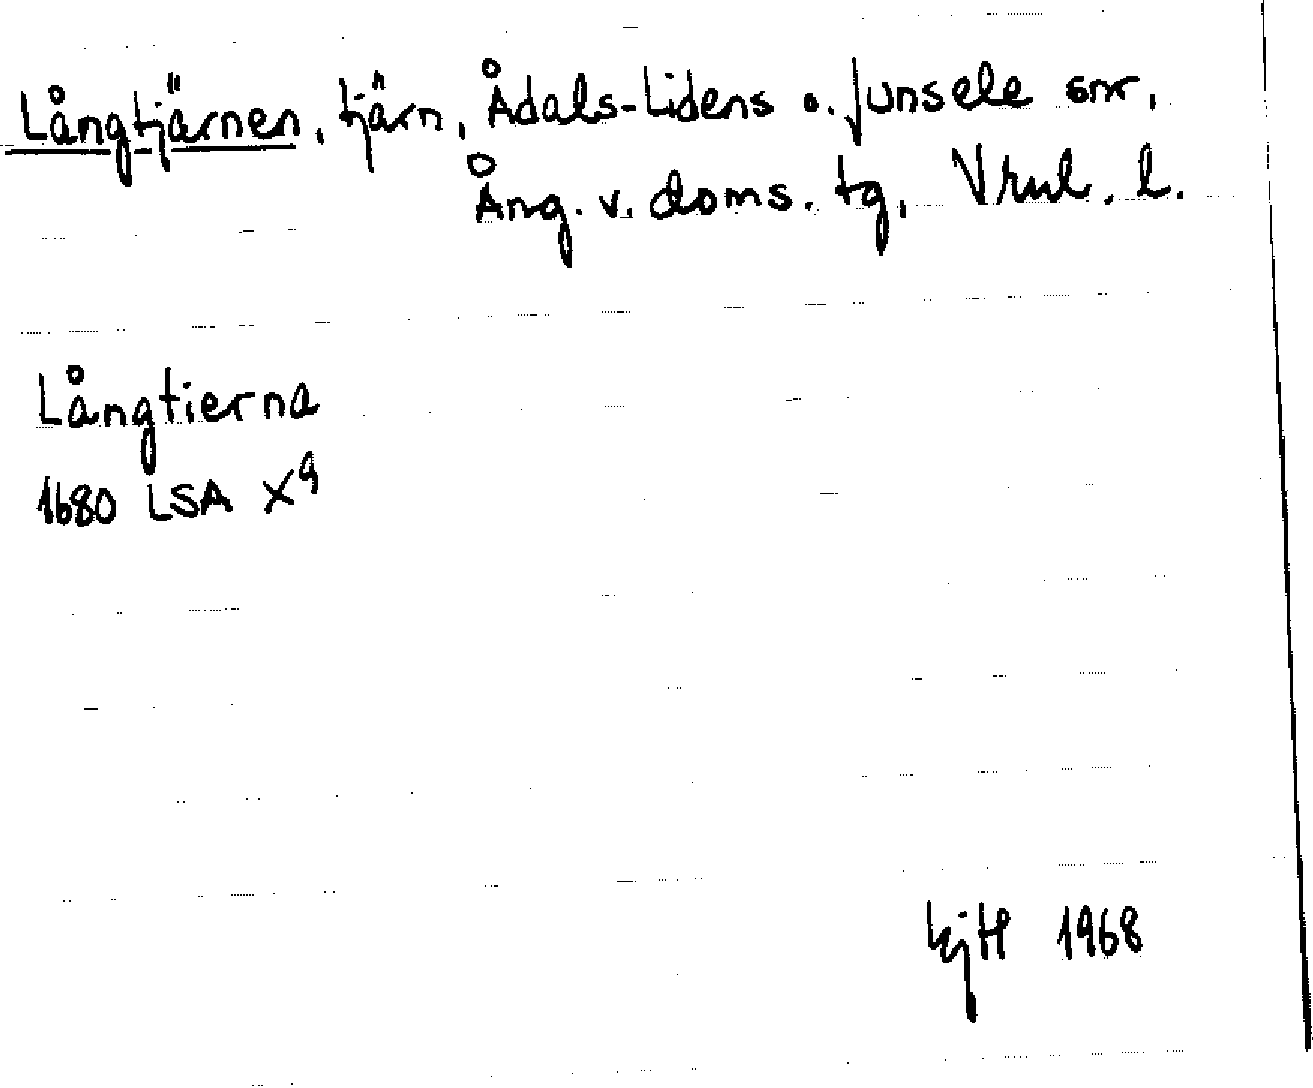 Långtjärnen, tjärn, Ådals-Lidens o. Junsele snr,
Ång. v. doms. tg, Vrnl. l.
Långtierna
1680 LSA X9
1968